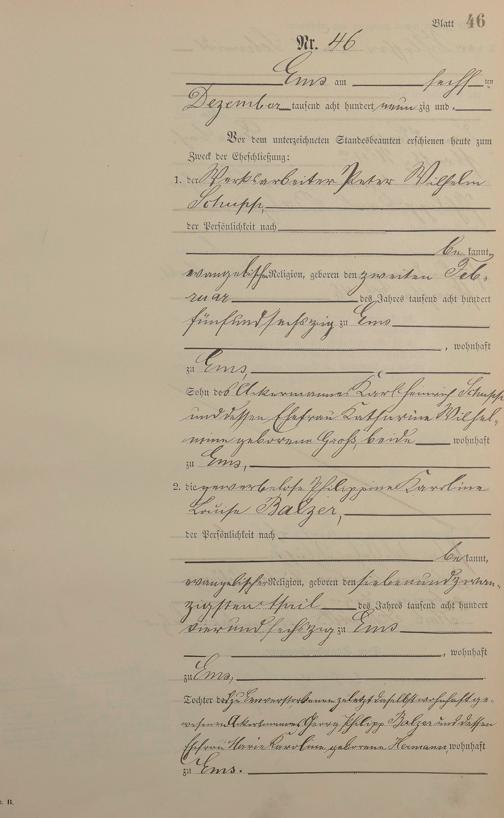 Blatt 46
Nr. 46
Ems am sechsten
Dezember tausend acht hundert neunzig und
Vor dem unterzeichneten Standesbeamten erschienen heute zum
Zweck der Eheschließung:
1. der Werksarbeiter Peter Wilhelm
Schupp,
der Persönlichkeit nach
bekannt,
evangelischer Religion, geboren den zweiten Feb-
ruar des Jahres tausend acht hundert
fünfundsechszig zu Ems
, wohnhaft
zu Ems,
Sohn des Ackermannes Karl Heinrich Schupp
und dessen Ehefrau Katharine Wilhel-
mine geborene Groß, beide wohnhaft
zu Ems,
2. die gewerbelose Philippine Karoline
Louise Balzer,
der Persönlichkeit nach
bekannt,
evangelischer Religion, geboren den siebenundzwan-
zigsten des Jahres tausend acht hundert
vierundsechszig zu Ems
, wohnhaft
zu Ems,
Tochter des zu verstorbenen zuletzt daselbst wohnhaft ge-
wesenen Ackermannes Georg Philipp Balzer und dessen
Ehefrau Marie Karoline, geborene Hermann, wohnhaft
zu Ems.